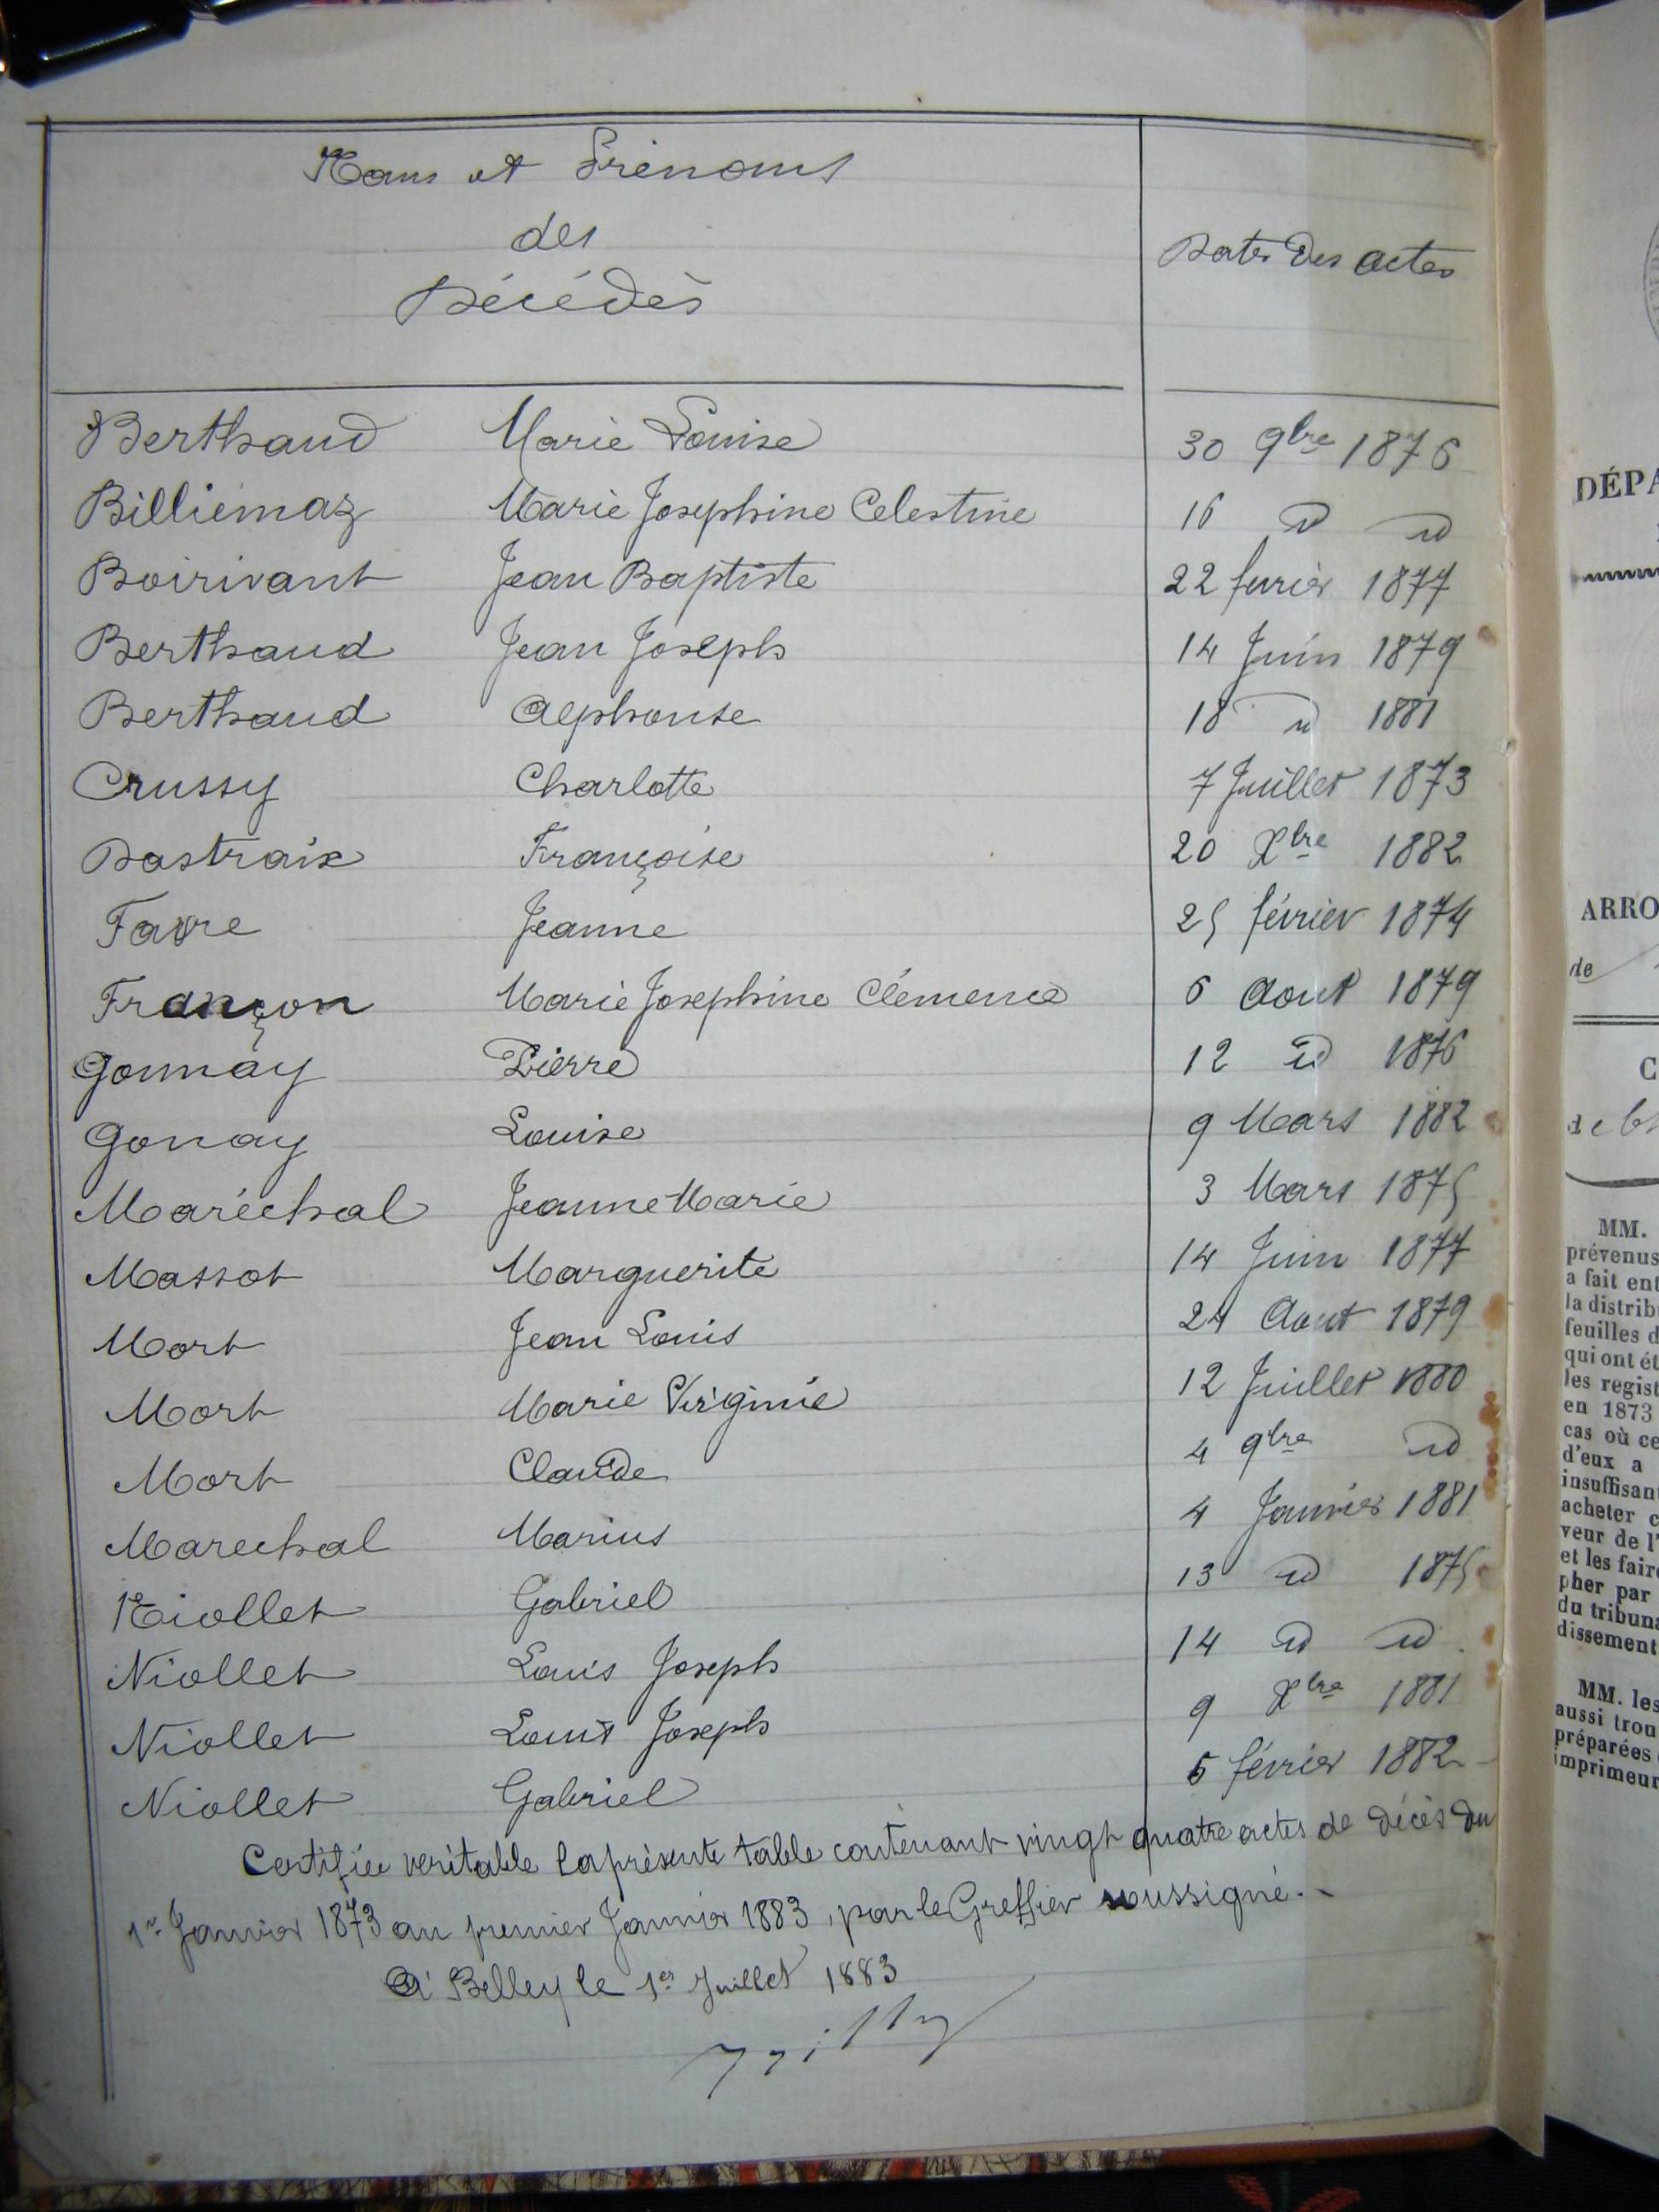 Noms et Prénoms
des
Décédés
Dates des actes
Berthaud Marie Louise 30 9bre 1876
Billiemaz Marie Josephine Celestine 16 id id
Boirivant Jean Baptiste 22 fevrier 1877
Berthaud Jean Joseph 14 Juin 1879
Berthaud Alphonse 18 id 1881
Crussy Charlotte 7 Juillet 1873
Dastraix Françoise 20 Xbre 1882
Favre Jeanne 25 février 1874
Françon Marie Josephine Clémence 6 Aout 1879
Gonnay Pierre 12 id 1876
Gonay Louise 9 Mars 1882
Maréchal Jeanne Marie 3 Mars 1875
Massot Marguerite 14 Juin 1877
Mort Jean Louis 24 Aout 1879
Mort Marie Virginie 12 Juillet 1880
Mort Claude 4 9bre id
Marechal Marius 4 Janvier 1881
Niollet Gabriel 13 id 1875
Niollet Louis Joseph 14 id id
Niollet Louis Joseph 9 Xbre 1881
Niollet Gabriel 5 février 1882
Certifiée veritable la présente table contenant vingt quatre actes de décès du
1er Janvier 1873 au premier Janvier 1883, par le Greffier soussigné.
A Belley le 1er Juillet 1883
DÉPA
ARRO
de
C
de
MM.
prévenus
a fait ent
la distrib
feuilles d
qui ont ét
les regist
en 1873
cas où ce
d'eux a
insuffisan
acheter c
veur de l'
et les faire
pher par
du tribuna
dissement
MM. les
aussi trou
préparées
imprimeur